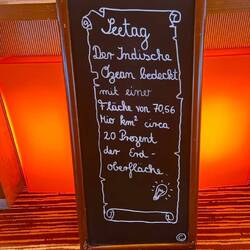 Seetag
Der Indische
Ozean bedeckt
mit einer
Fläche von 70,56
Mio km² circa
20 Prozent
der Erd-
oberfläche.
©